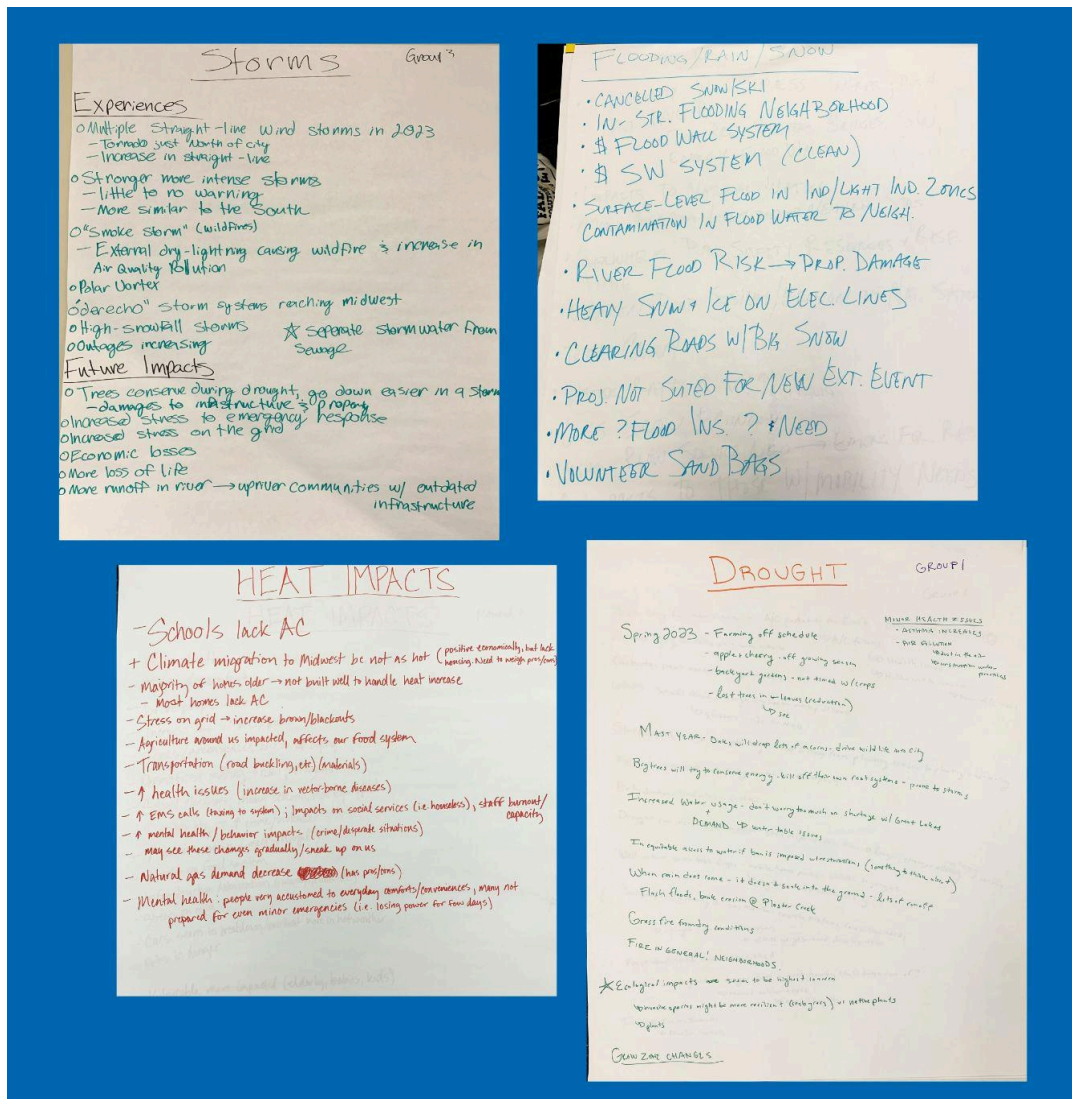 Storms
Group 3
Experiences
o Multiple straight-line wind storms in 2023
- Tornado just north of city
- Increase in straight-line
o Stronger more intense storms
- little to no warning
- More similar to the South
o "Smoke storm" (wildfires)
- External dry-lightning causing wildfire & increase in
Air Quality Pollution
o Polar Vortex
o "derecho" storm systems reaching midwest
o High-snowfall storms
☆ Seperate stormwater from
Sewage
o Outages increasing
Future Impacts
o Trees conserve during drought, go down easier in a storm
- damages to infrastructure & propery
o Increased stress to emergency response
o Increased stress on the grid
o Economic losses
o More loss of life
o More runoff in river → upriver communities w/ outdated
infrastructure
FLOODING/RAIN/SNOW
• CANCELLED SNOW/SKI
• IN-STR. FLOODING NEIGHBORHOOD
• $ FLOOD WALL SYSTEM
• $ SW SYSTEM (CLEAN)
• SURFACE-LEVEL FLOOD IN IND/LIGHT IND. ZONES
CONTAMINATION IN FLOOD WATER TO NEIGH.
• RIVER FLOOD RISK → PROP. DAMAGE
• HEAVY SNOW & ICE ON ELEC. LINES
• CLEARING ROADS W/BIG SNOW
• PROJ. NOT SUITED FOR/NEW EXT. EVENT
• MORE ? FLOOD INS. ? & NEED
• VOLUNTEER SAND BAGS
HEAT IMPACTS
- Schools lack AC
+ Climate migration to Midwest bc not as hot (positive economically, but lack
housing. Need to weigh pros/cons)
- Majority of homes older → not built well to handle heat increase
- Most homes lack AC
- Stress on grid → increase brown/blackouts
- Agriculture around us impacted, affects our food system
- Transportation (road buckling, etc) (materials)
- ↑ health issues (increase in vector-borne diseases)
- ↑ EMS calls (taxing to system); Impacts on social services (i.e. houseless), staff burnout/
capacity
- ↑ mental health/behavior impacts (crime/desperate situations)
- may see these changes gradually/sneak up on us
- Natural gas demand decrease (has pros/cons)
- Mental health: people very accustomed to everyday comforts/conveniences, many not
prepared for even minor emergencies (i.e. losing power for few days)
DROUGHT
GROUP 1
MINOR HEALTH ISSUES
• ASTHMA INCREASES
• AIR POLLUTION
Spring 2023 - Farming off schedule
- apple & cherry - off growing season
- backyard gardens - not aimed w/crops
- lost trees in leaves (reduction)
MAST YEAR - Oaks will drop lots of acorns - drive wildlife into city
Big trees will try to conserve energy - kill off their own root systems - prone to storms
Increased Water usage - don't worry too much on shortage w/ Great Lakes
+
DEMAND ↳ water table issues
Inequitable access to water if ban is imposed w/restrictions (something to think about)
When rain does come - it doesn't soak into the ground - lots of runoff
Flash floods, bank erosion @ Plaster Creek
Grass fire from dry conditions
FIRE IN GENERAL! NEIGHBORHOODS.
☆ Ecological impacts seem to be highest concern
↳ invasive species might be more resilient (crabgrass) vs native plants
↳ plants
GROW ZONE CHANGES